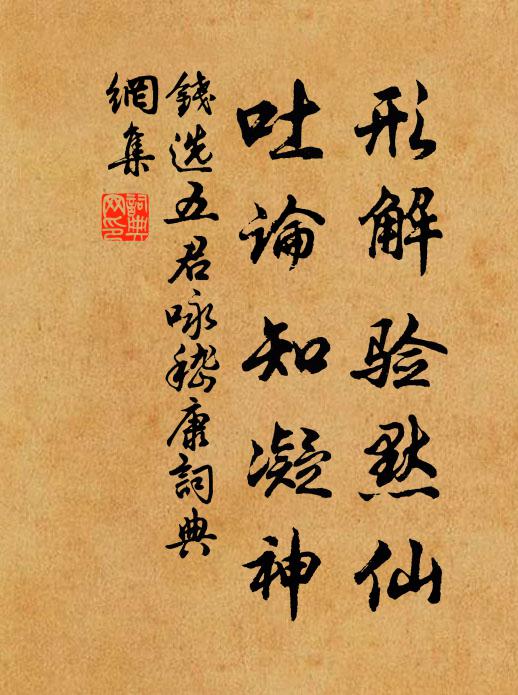 形解验默仙
吐論知凝神
錢选五君咏嵇康詞典
網集
詞典
网印